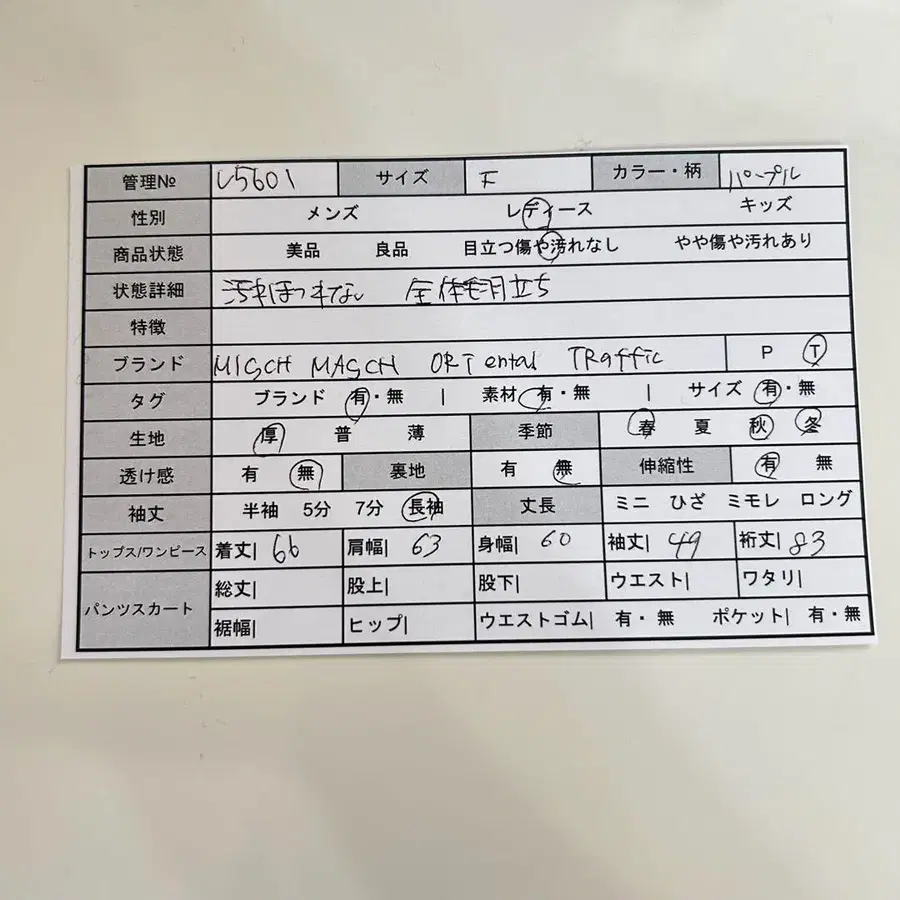 管理№ L5601 サイズ F カラー・柄 パープル
性別 メンズ レディース キッズ
商品状態 美品 良品 目立つ傷や汚れなし やや傷や汚れあり
状態詳細 汚れほつれない 全体毛羽立ち
特徴
ブランド MIGCH MAGCH ORiental TRaffic P T
タグ ブランド 有・無 | 素材 有・無 | サイズ 有・無
生地 厚 普 薄 季節 春 夏 秋 冬
透け感 有 無 裏地 有 無 伸縮性 有 無
袖丈 半袖 5分 7分 長袖 丈長 ミニ ひざ ミモレ ロング
トップス/ワンピース 着丈| 66 肩幅| 63 身幅| 60 袖丈| 49 裄丈| 83
パンツスカート 総丈| 股上| 股下| ウエスト| ワタリ|
裾幅| ヒップ| ウエストゴム| 有・無 ポケット| 有・無